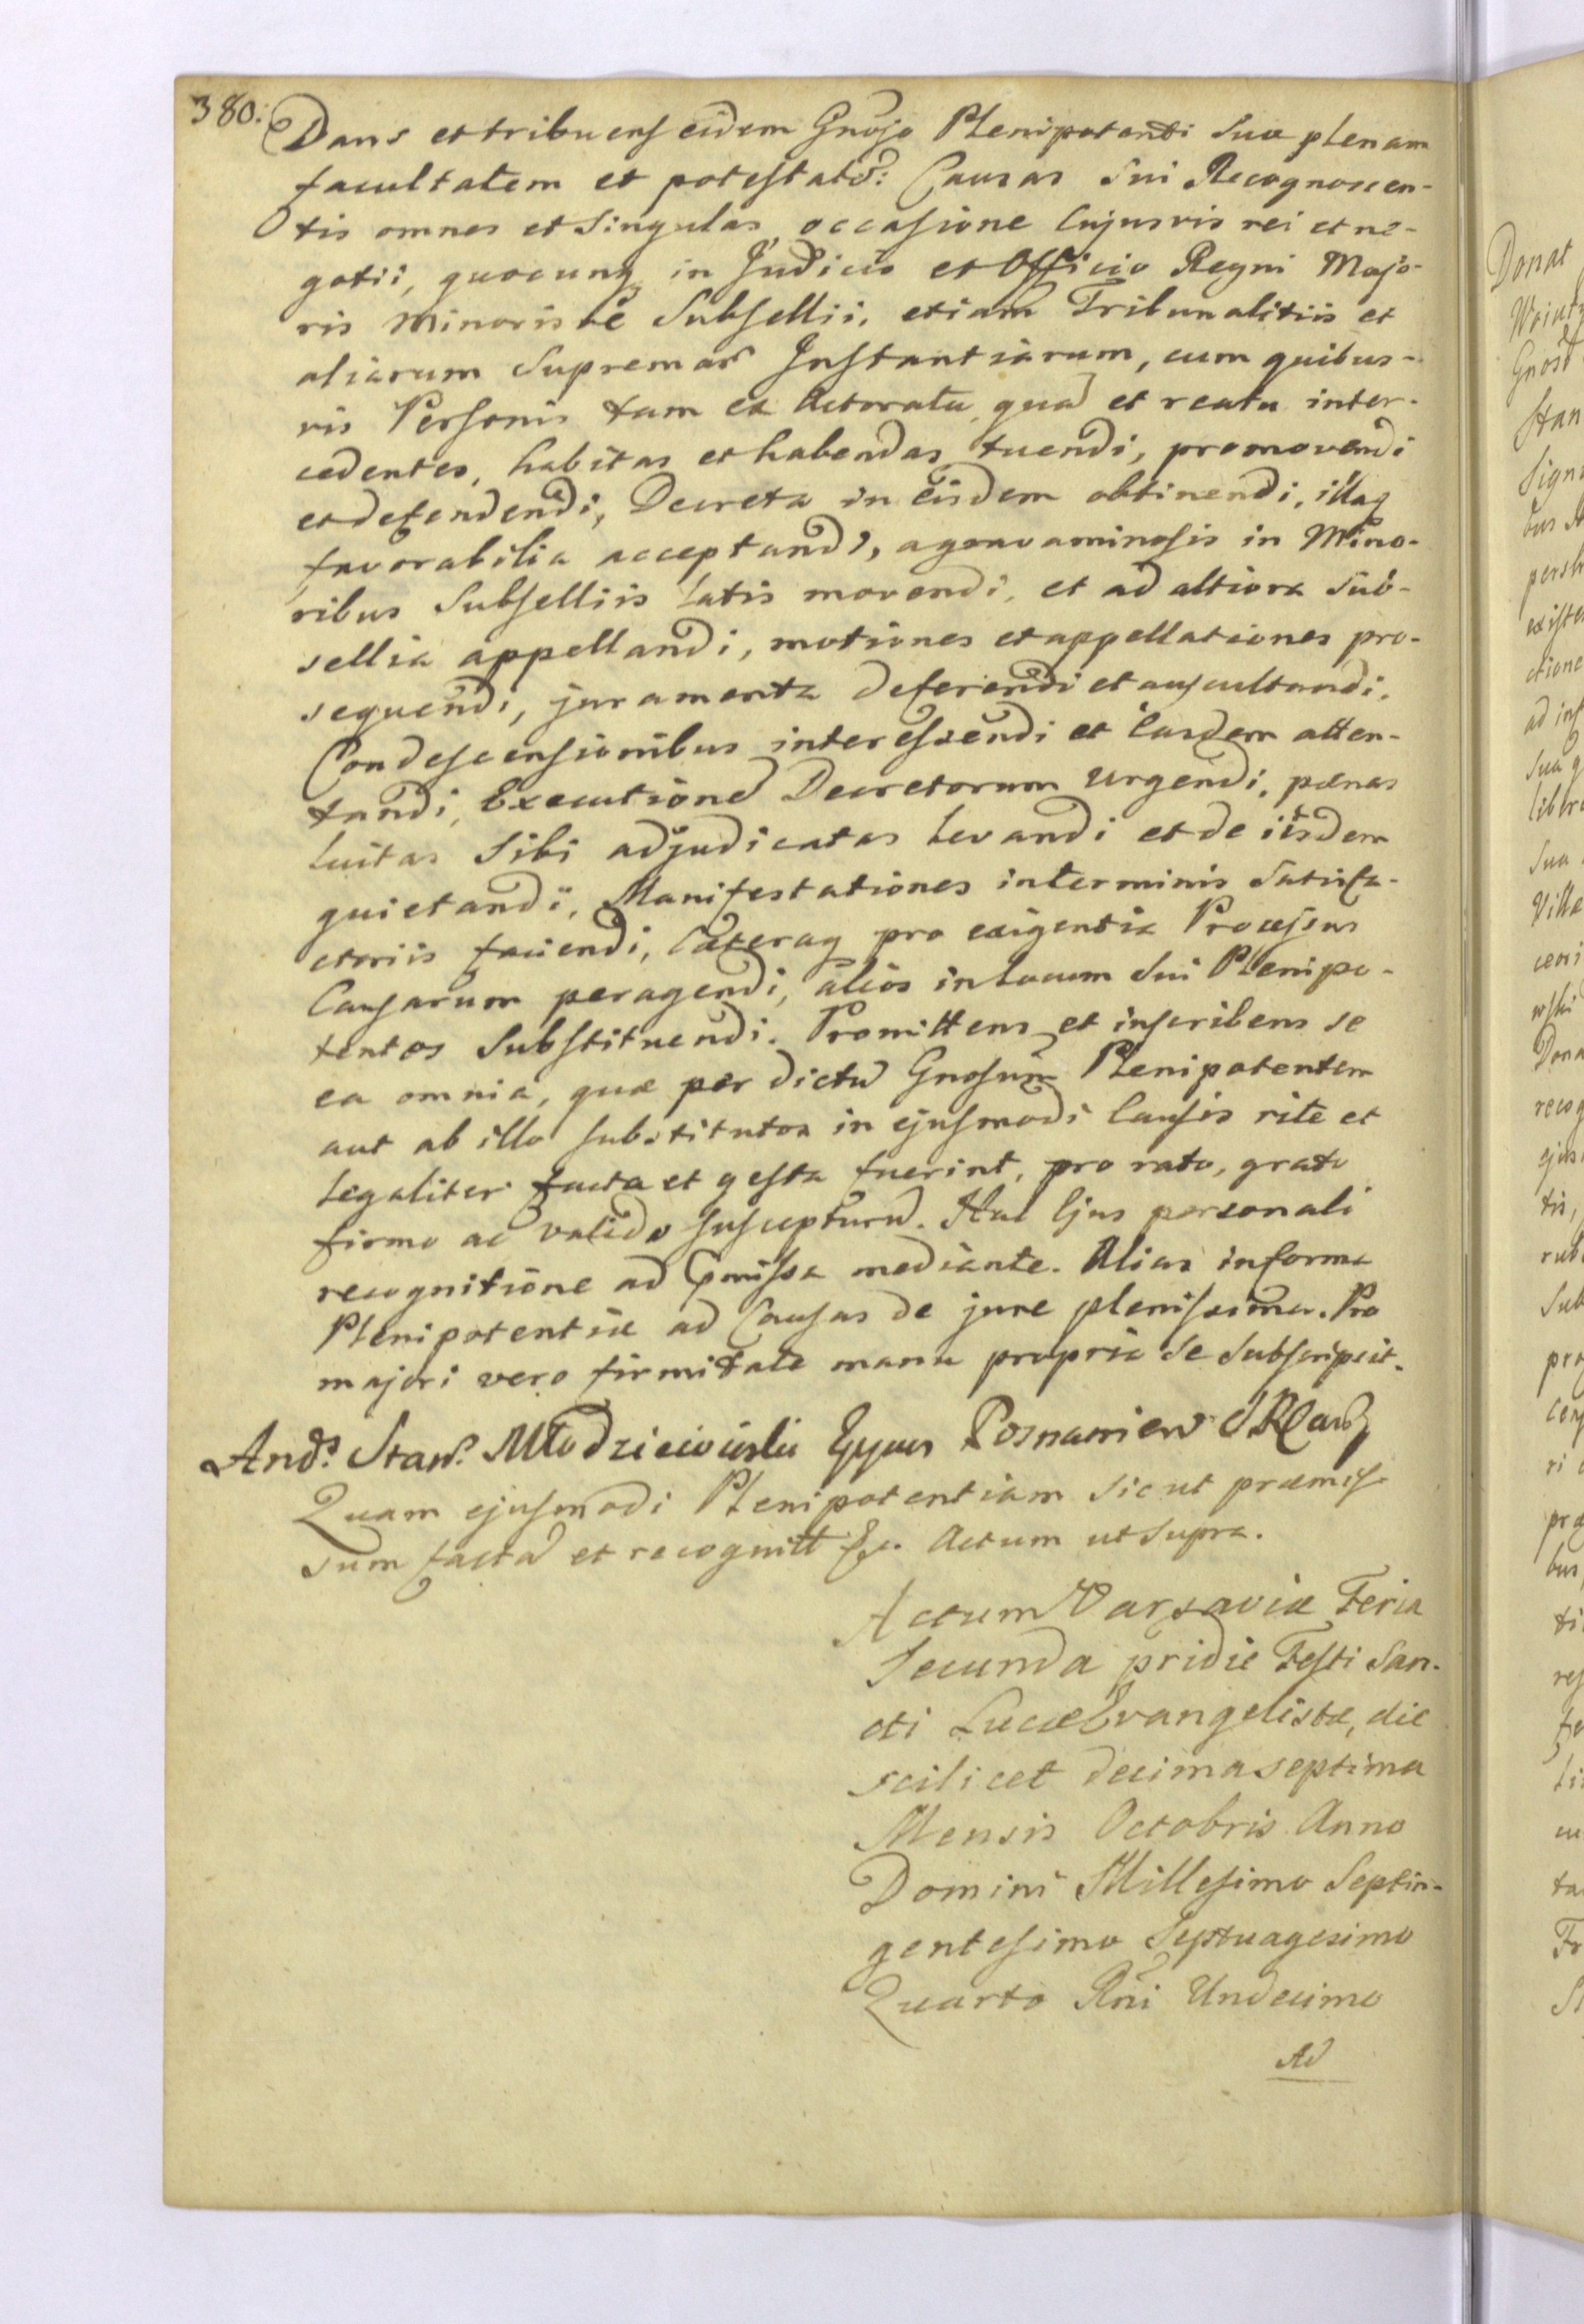 380.
Dans et tribuens eidem Gnoso Plenipotenti Suo plenam
facultatem et potestatē: Causas Sui Recognoscen-
tis omnes et Singulas occasione Cujusvis rei et ne-
gotii, quocunq in Judicio et Officio Regni Majo-
ris Minorisve Subsellii, etiam Tribunalitiis et
aliarum Supremar Instantiarum, cum quibus-
vis Personis tam ex Actoratu quā et reatu inter-
cedentes, habitas et habendas tuendi, promovendi
et defendendi, Decreta in eisdem obtinendi, illaq
favorabilia acceptandi, agravaminosis in Mino-
ribus Subselliis latis movendi, et ad altiora Sub-
sellia appellandi, motiones et appellationes pro-
sequendi, juramenta deferendi et auscultandi,
Condescensionibus interessendi et Easdem atten-
tandi, Executionē Decretorum Urgendi, pænas
luitas Sibi adjudicatas levandi et de iisdem
quietandi, Manifestationes in terminis Satisfa-
ctoriis faciendi, Cæteraq pro exigentia Processus
Causarum peragendi, alios in locum Sui Plenipo-
tentes Substituendi. Promittens et inscribens se
ea omnia, quæ per dictū Gnosum Plenipotentem
aut ab illo substitutos in ejusmodi Causis rite et
legaliter facta et gesta fuerint, pro rato, grato
firmo ac valido suscepturū. Hac Ejus personali
recognitione ad pmissa mediante. Alias in forma
Plenipotentiæ ad Causas de jure plenissima. Pro
majori vero firmitate manu propria Se Subscripsit.
And. Stan. Młodzieiowski Eppus Posnanien
Quam ejusmodi Plenipotentiam Sicut præmis-
sum factā et recognitt &c. Actum ut Supra.
Actum Varsaviæ Feria
Secunda pridie Festi San-
cti Lucæ Evangelistæ, die
scilicet decima septima
Mensis Octobris Anno
Domini Millesimo Septin-
gentesimo Septuagesimo
Quarto Rni Undecimo
Ad